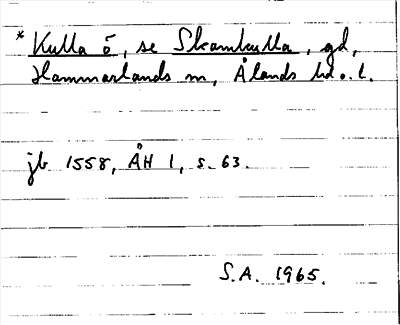 * Kulla ö, se Skarnkulla, gd,
Hammarlands sn, Ålands hd o. l.
jb 1558, ÅH 1, s. 63.
S.A. 1965.